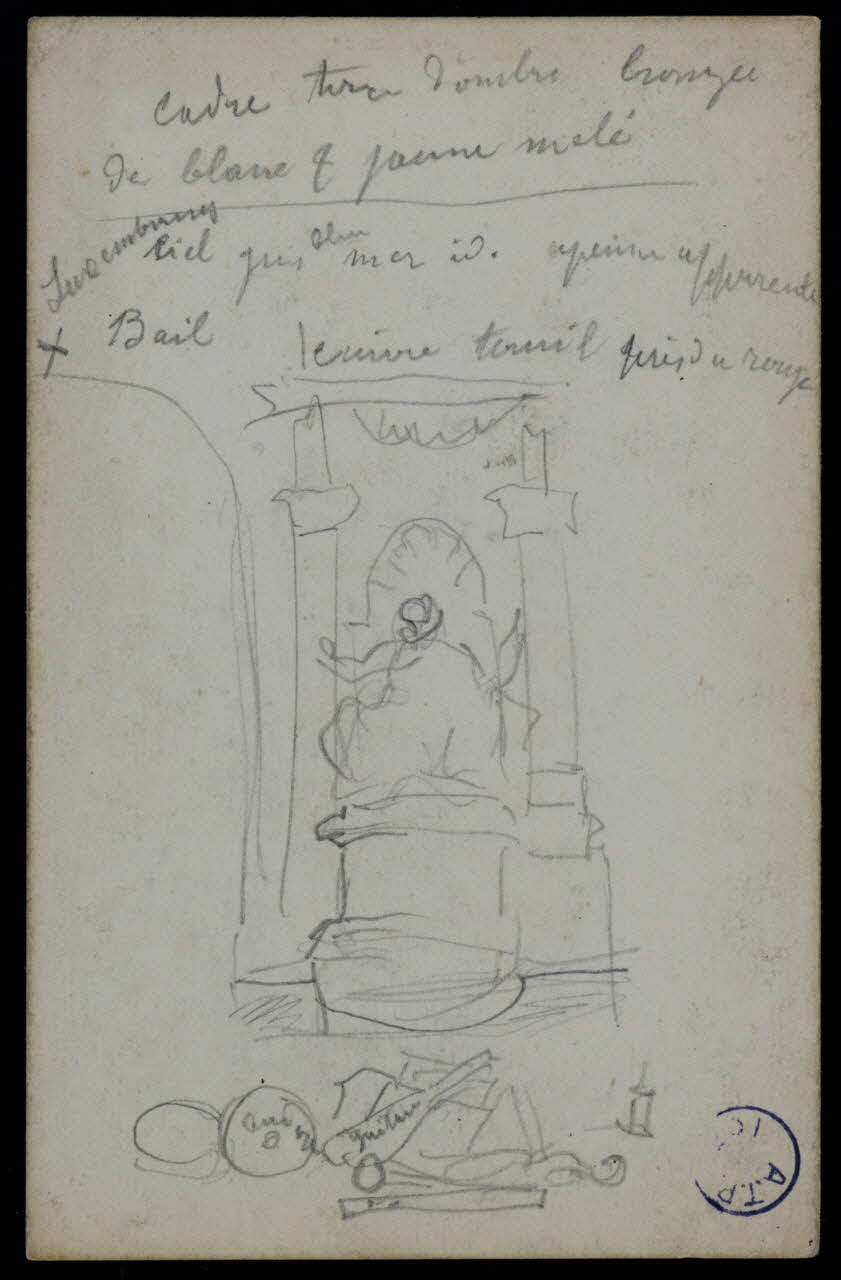 Cadre terre d'ombre bronzée
de blanc & jaune mêlé
Luxembourg
ciel gris bleu mer id. apeine apparente
+ Bail
cuivre terni près du rouge
guitare
A.T.P